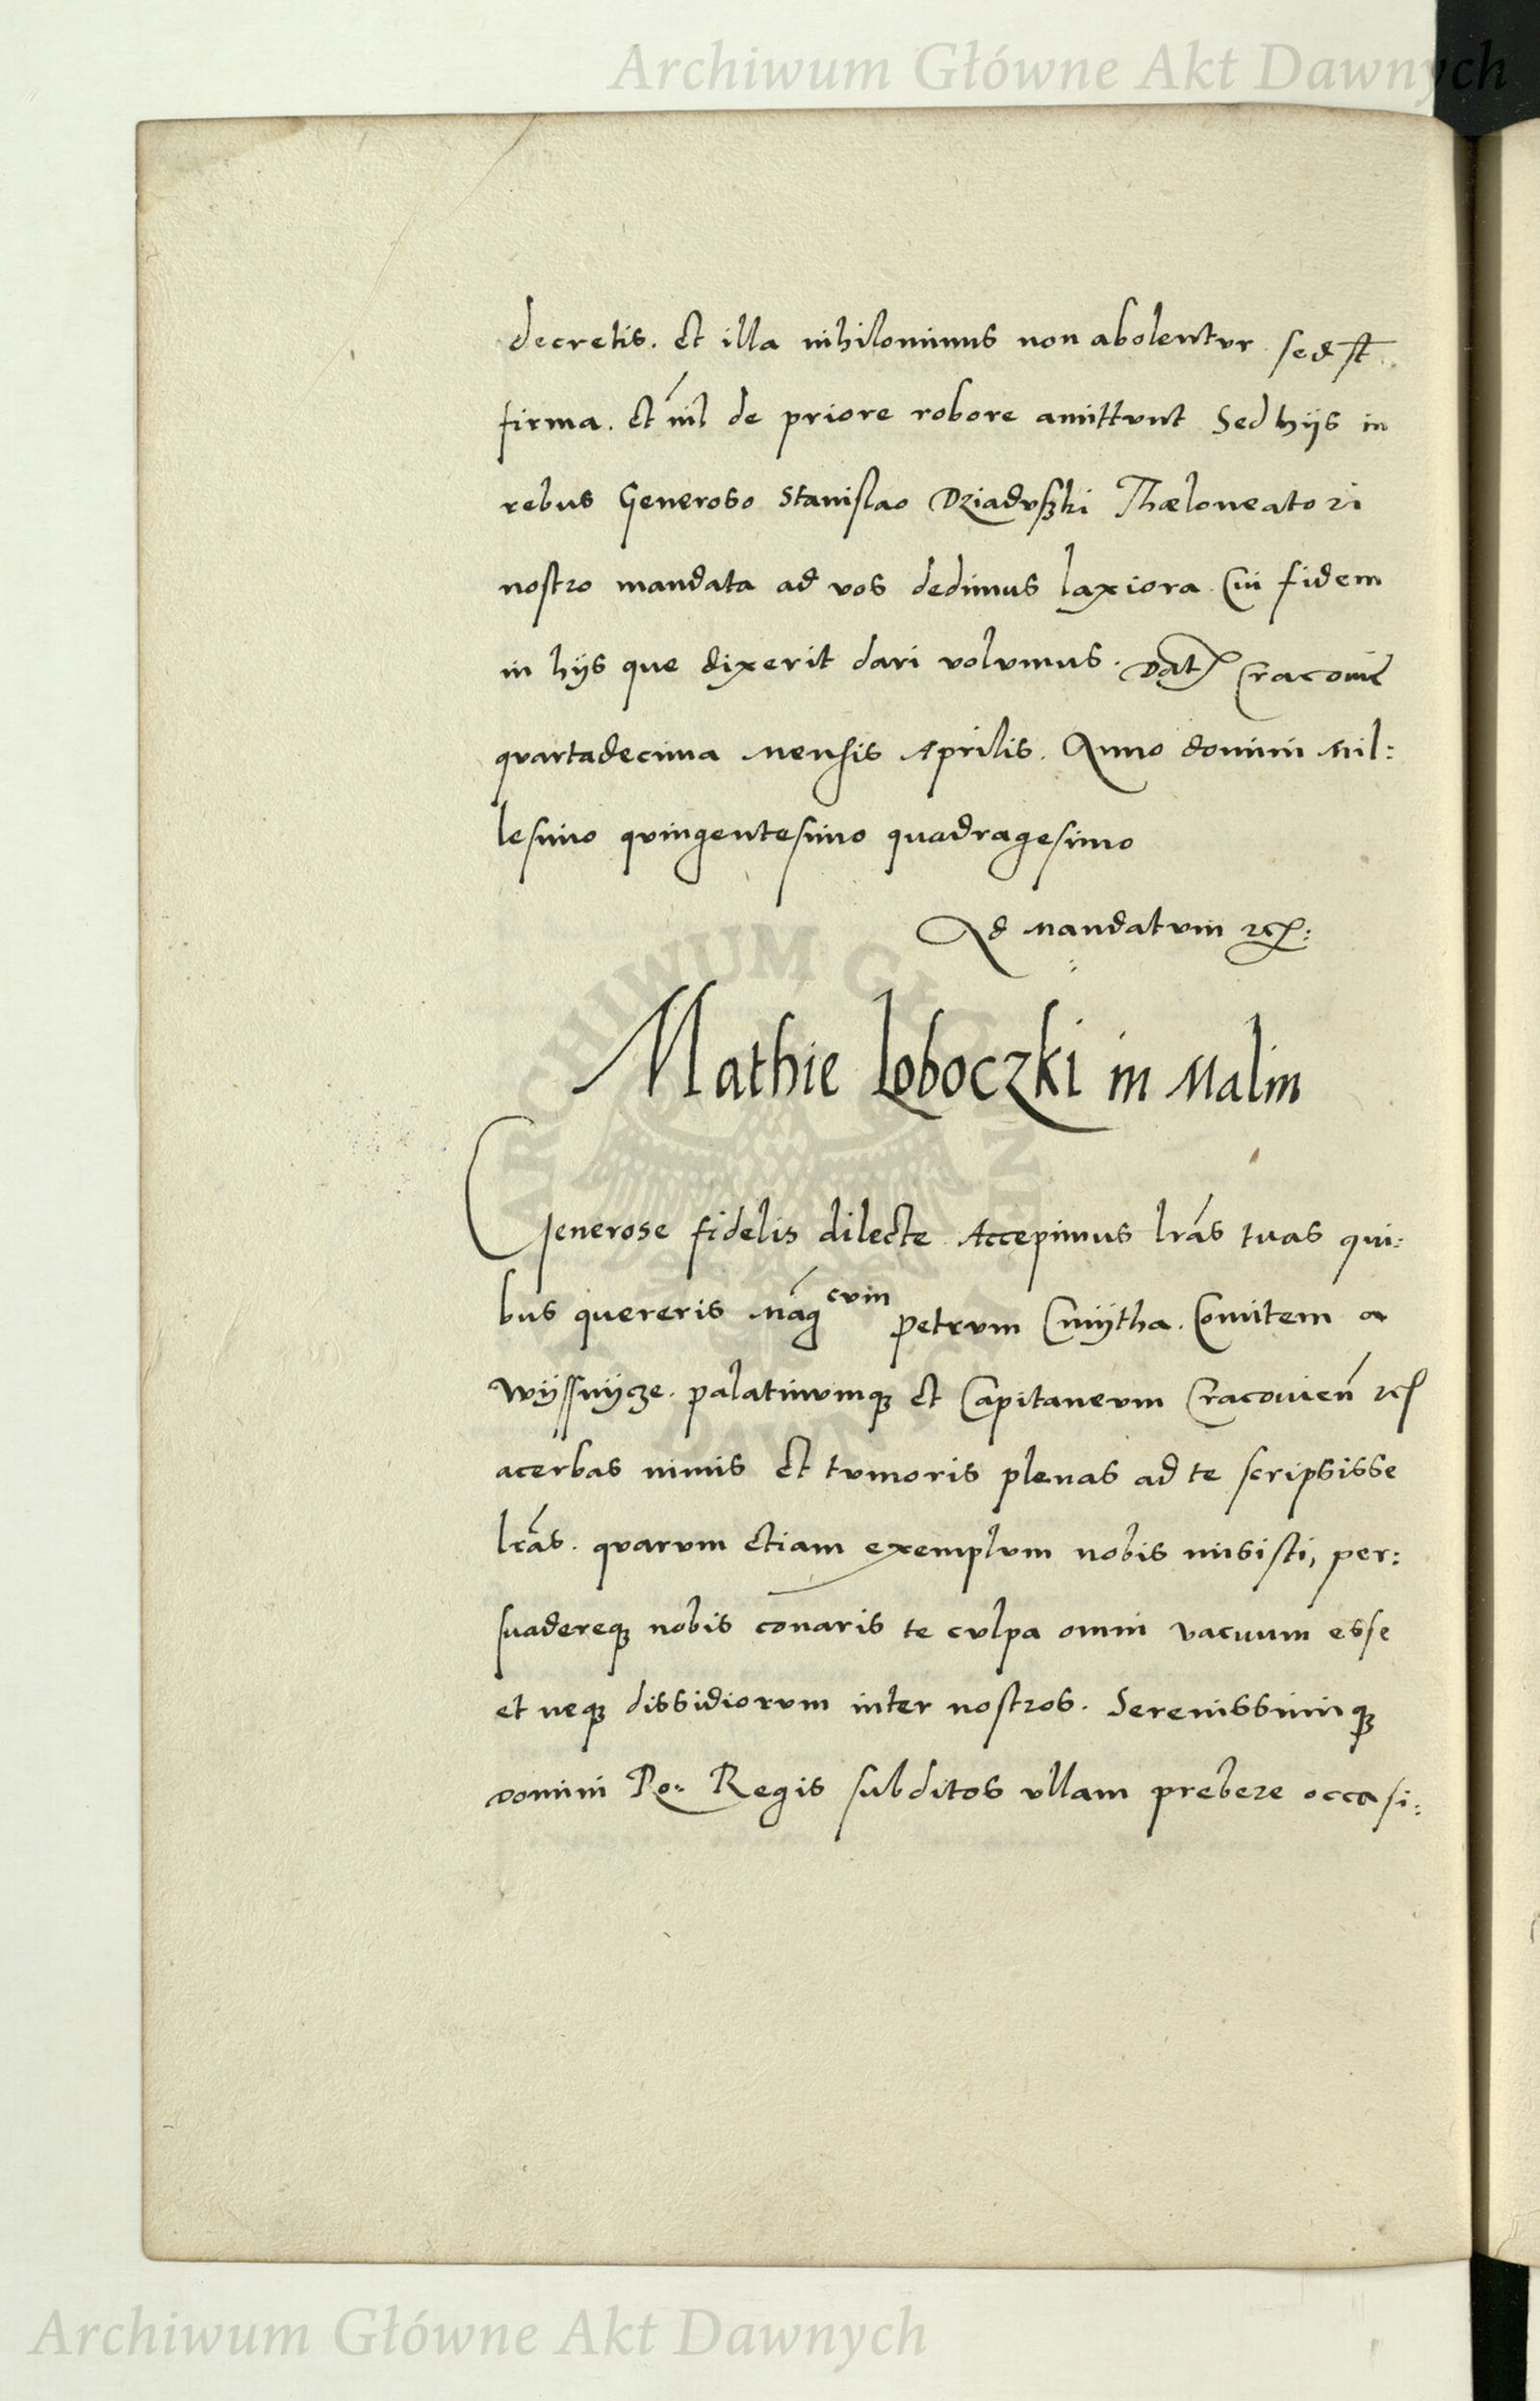 Archiwum Główne Akt Dawnych
decretis. Et illa nihilominus non abolentur sed st̄
firma. Et nil de priore robore amittunt Sed hijs in
rebus Generoso Stanislao Dziaduszki Thæloneatori
nostro mandata ad vos dedimus laxiora. Cui fidem
in hijs que dixerit dari volumus. Dat Cracovie
quartadecima Mensis Aprilis. Anno domini Mil:
lesimo quingentesimo quadragesimo
Ad Mandatum etc:
Mathie Loboczki in Malin
Generose fidelis dilecte Accepimus lrás tuas qui:
bus quereris Mág cum petrum Cmijtha. Comitem a
Wijssnijcze. palatinumq; et Capitaneum Cracovien̄ etc
acerbas nimis Et tumoris plenas ad te scripsisse
lrás. quarum etiam exemplum nobis misisti, per:
suadereq; nobis conaris te culpa omni vacuum esse
et neq; dissidiorum inter nostros. Serenissimiq;
domini Ro: Regis subditos ullam prebere occasi:
ARCHIWUM GŁÓWNE AKT DAWNYCH
Archiwum Główne Akt Dawnych